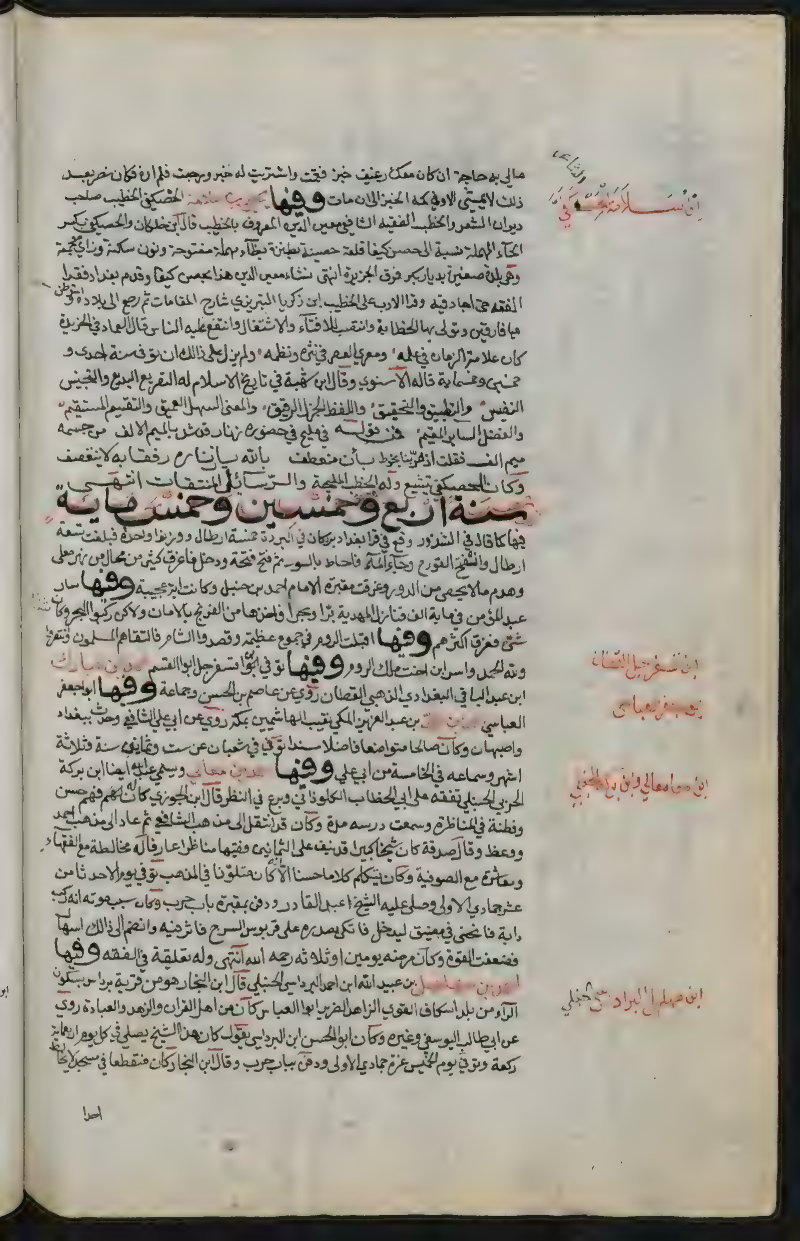 مالي به حاجة ان كان معك رغيف خبز فقمت واشتريت له خبز ورجعت فلم ان فكان خرج بعد
ذلك لا يمشي الا وفي كمه الخبز الى ان مات وفيها يحيى بن سلامة الحصكفي الخطيب صاحب
ديوان الشعر والخطب الفقيه الشافعي معين الدين المعروف بالخطيب قال ابن خلكان والحصكفي بكسر
الحاء المهملة نسبة الى حصن كيفا قلعة حصينة بطنزة بطاء مهملة مفتوحة ونون سكنة وزاي معجمة
وهي بلدة صغيرة بديار بكر فوق الجزيرة انتهى نشاء معين الدين هذا بحصن كيفا وقدم بغداد فقرا
الفقه حتى اجاد فيه وقرا الادب على الخطيب ابن زكريا التبريزي شارح المقامات ثم رجع الى بلاده
ميافارقين وتولى بها الخطابة وانتصب للافتاء والاشتغال وانتفع عليه الناس قال العماد في الخريدة
كان علامة الزمان في علمه ومعري العصر في نثره ونظمه ولم يزل على ذلك ان توفي سنة احدى و
خمسين وخمسماية قاله الاسنوي وقال ابن شهبة في تاريخ الاسلام له الترصيع البديع والتجنيس
النفيس والتطبيق والتحقيق واللفظ الجزل الرقيق والمعنى السهل العميق والتقسيم المستقيم
والفضل الساير المقيم فمن قوله في مليح في خصوره زنار قوش بالميم الالف من جسمه
ميم الف فقلت اذ مر بنا بخوط بان منعطف بالله يا زناره رفقا به لا ينقصف
وكان الحصكفي يتشيع وله الخطب المليحة والرسائل المنتقات انتهى
سنة اربع وخمسين وخمسماية
فيها كما قال في الشذور وقع في قرا بغداد برد كان في البردة خمسة ارطال ووزنوا واحدة فبلغت تسعة
ارطال وانفتح القورج وجاء الماء فاحاط بالسور ثم فتح فتحة ودخل فاغرق كثير من محال من نهر معلى
وهدم ما لا يحصى من الدور وغرقت مقبرة الامام احمد بن حنبل وكانت اية عجيبة وفيها سار
عبد المؤمن في ماية الف فنازل المهدية برا وبحرا فاخذها من الفرنج بالامان ولاكن ركبوا البحر وكان
شتي فغرق اكثرهم وفيها اقبلت الروم في جموع عظيمة وقصدوا الشام فالتقاهم المسلمون فانتصروا
ولله الحمد واسر ابن اخت ملك الروم وفيها توفي ابن القسفر جل ابو القسم احمد بن مبارك
ابن عبد الباقي البغدادي الذهبي القطان روي عن عاصم بن الحسن وجماعة وفيها ابو جعفر
العباسي احمد بن محمد بن عبد العزيز المكي نقيب الهاشميين بمكة روي عن ابي علي الشافعي وحدث ببغداد
واصبهان وكان صالحا متواضعا فاضلا مسندا توفي في شعبان عن ست وثمانين سنة وثلاثة
اشهر وسماعه في الخامسة من ابي علي وفيها احمد بن معالي وسمي عبد الله ايضا ابن بركة
الحربي الحنبلي تفقه على ابي الخطاب الكلوذاني وبرع في النظر قال ابن الجوزي كان له فهم حسن
وفطنة في المناظرة وسمعت درسه مرة وكان قد انتقل الى مذهب الشافعي ثم عاد الى مذهب احمد
ووعظ وقال صدقة كان شيخا كبيرا قد نيف على الثمانين وفقيها مناظرا عارفا له مخالطة مع الفقهاء
ومعاشرة مع الصوفية وكان يتكلم كلاما حسنا الا كان متلونا في المذهب توفي يوم الاحد ثامن
عشر جمادي الاولى وصلى عليه الشيخ عبد القادر ودفن بمقبرة باب حرب وكان سبب موته انه ركب
دابة فانحنى في مضيق ليدخل فاتكى بصدره على قربوس السرج فاثر فيه وانضم الى ذلك اسهال
فضعفت القوة وكان مرضه يومين او ثلاثة رحمه الله انتهى وله تعليقة في الفقه وفيها
احمد بن مهلهل بن عبيد الله ابن احمد البرداسي الحنبلي قال ابن النجار هو من قرية برداس بسكون
الراء من بلد اسكاف القوي الزاهد الضرير ابو العباس كان من اهل القران والزهد والعبادة روي
عن ابي طالب اليوسفي وغيره وكان ابو الحسن ابن البرداسي يقول كان هذا الشيخ يصلي في كل يوم اربعماية
ركعة وتوفي يوم الخميس غرة جمادي الاولى ودفن بباب حرب وقال ابن النجار كان منقطعا في مسجد لا يخالط
احدا
ابن سلامة الحصكفي
ابن قسفر جبل القطان
ابو جعفر العباسي
ابن معالي وابن بركة الحنبلي
ابن مهلهل البرادسي الحنبلي